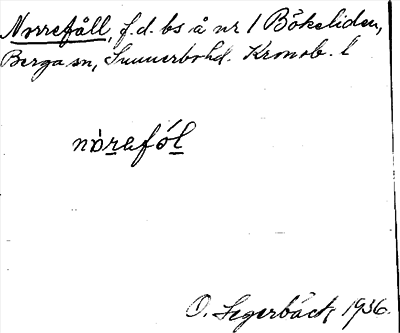 Norrefåll, f.d. bs å nr 1 Bökeliden,
Berga sn, Sunnerbohd. Kronob. l
nòrafó̀l
O. Segerbäck, 1936.